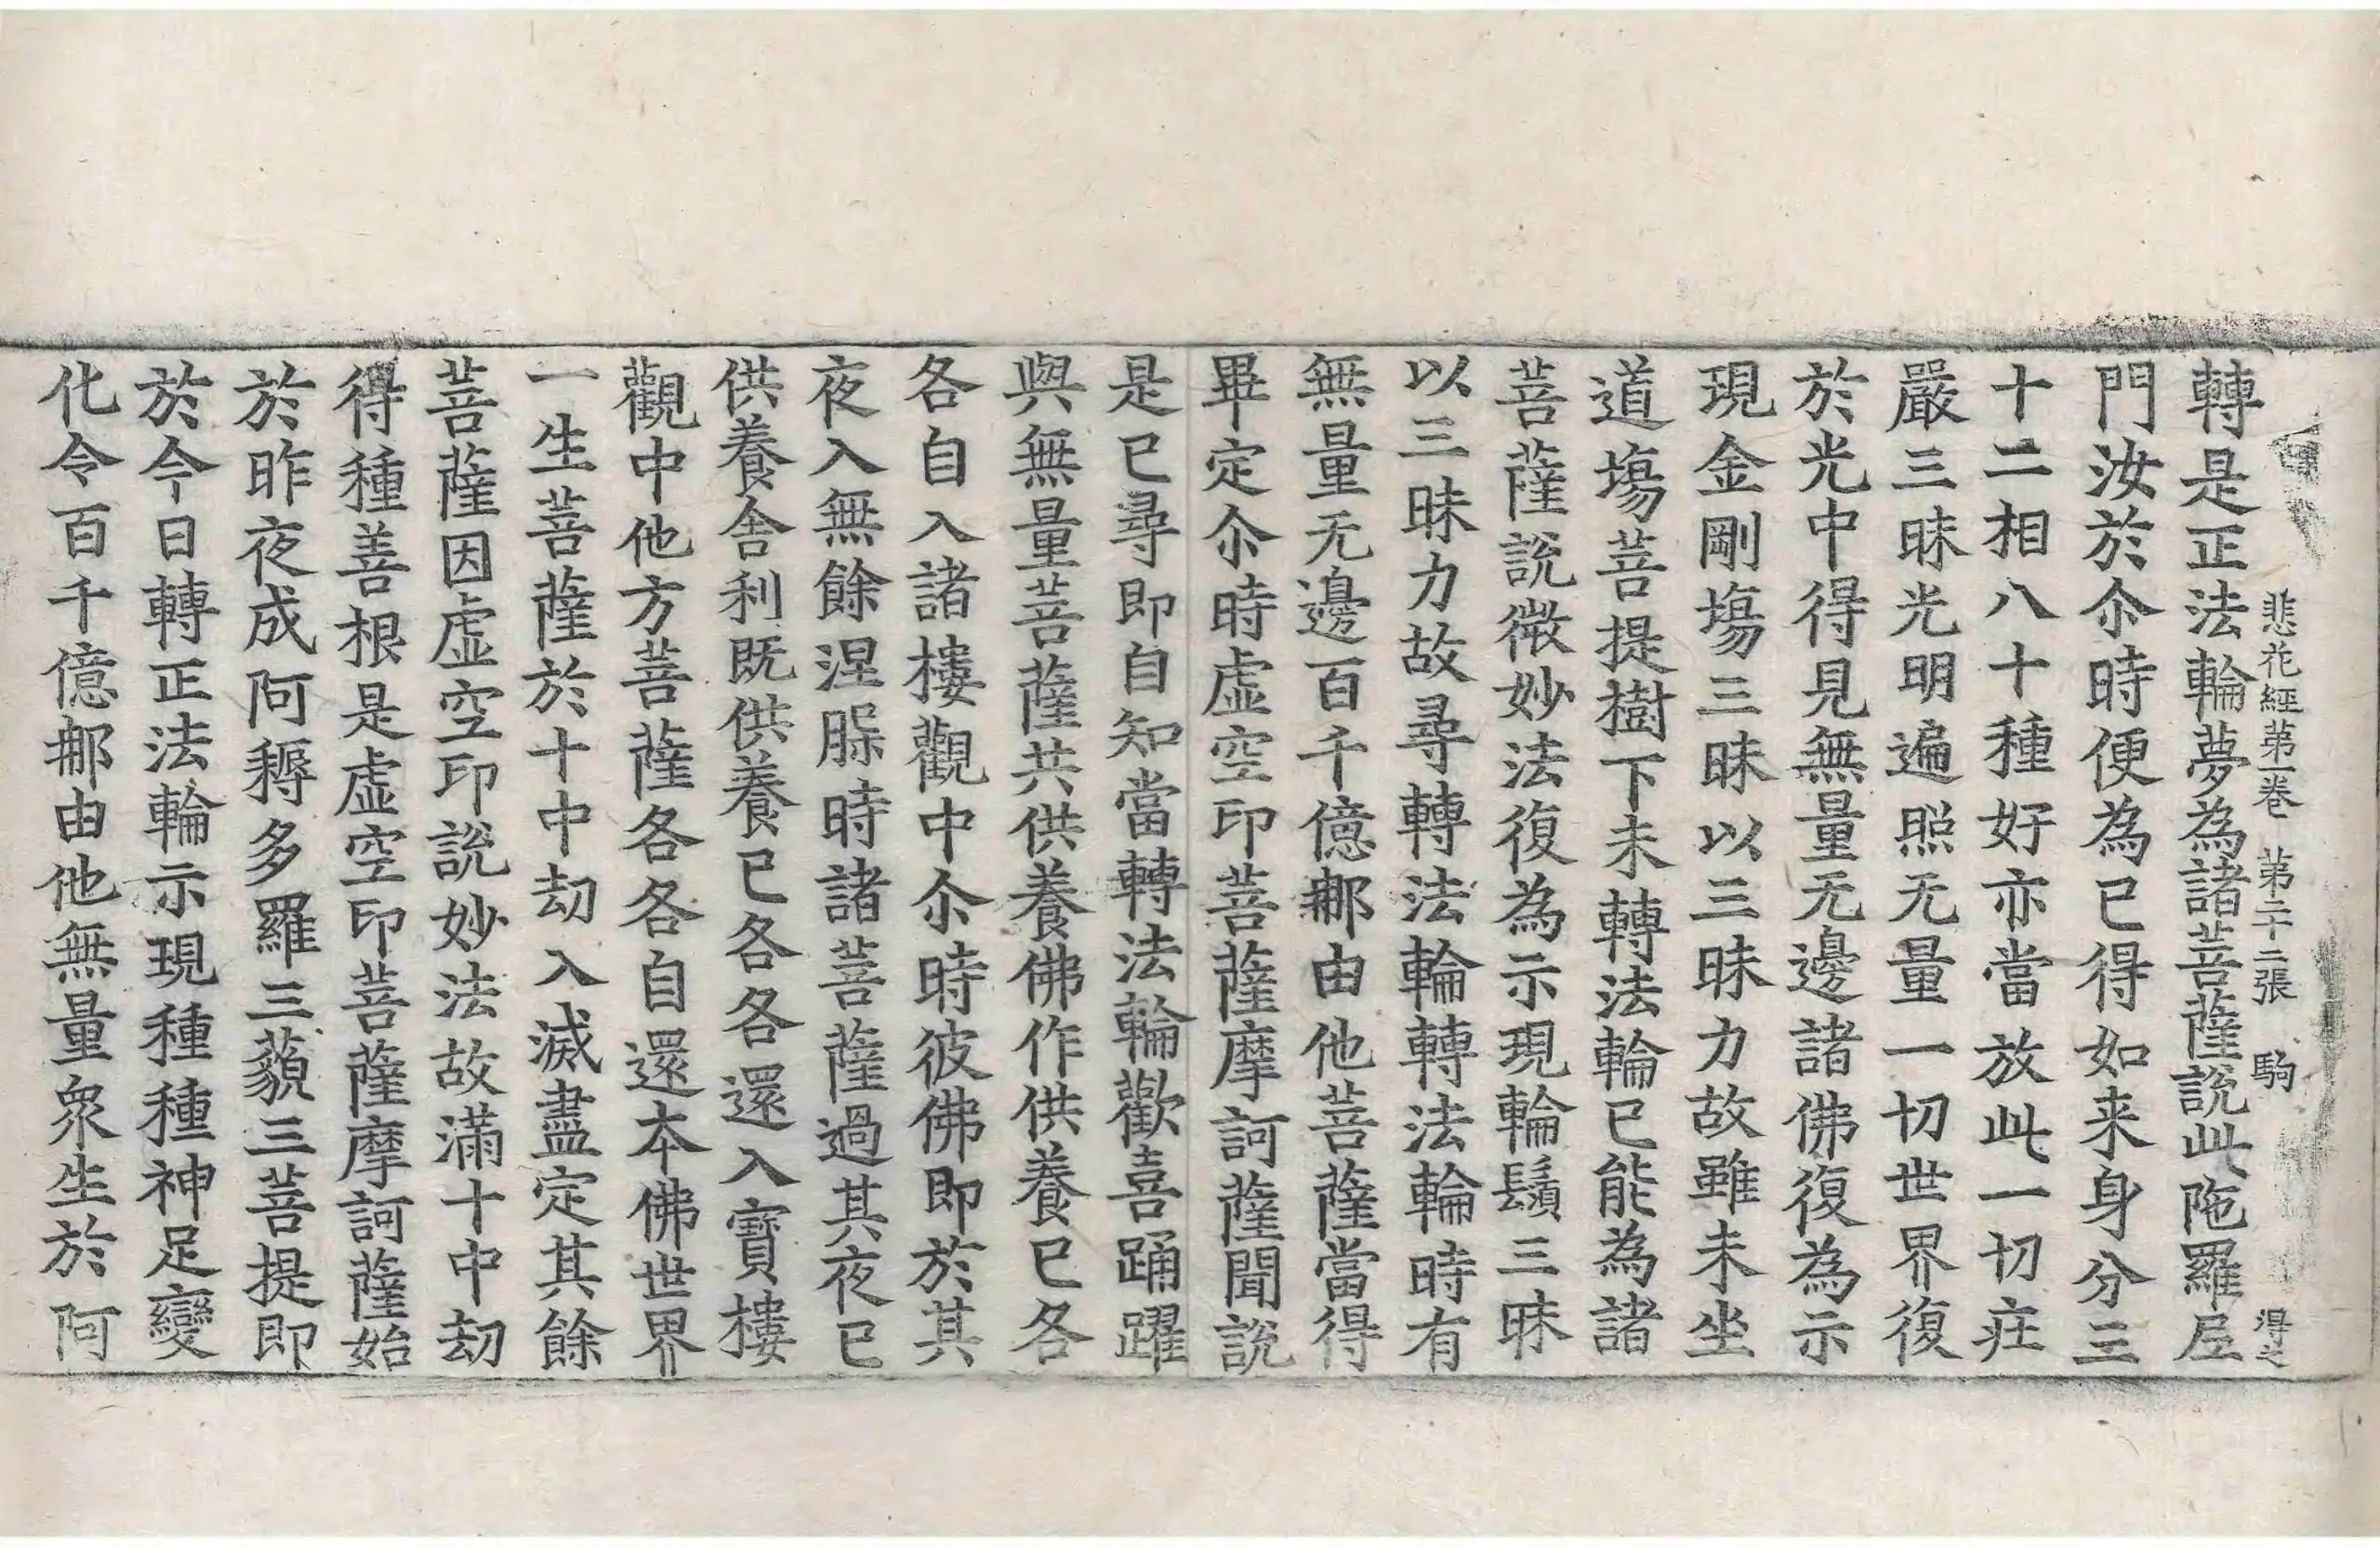 悲花經第一卷 第二十二張 駒 得之
轉是正法輪夢為諸菩薩說此陁羅尼
門汝於尒時便為已得如来身分三
十二相八十種好亦當放此一切莊
嚴三昧光明遍照无量一切世界復
於光中得見無量无邊諸佛復為示
現金剛塲三昧以三昧力故雖未坐
道塲菩提樹下未轉法輪已能為諸
菩薩說微妙法復為示現輪鬚三昧
以三昧力故尋轉法輪轉法輪時有
無量无邊百千億那由他菩薩當得
畢定尒時虛空印菩薩摩訶薩聞說
是已尋即自知當轉法輪歡喜踊躍
與無量菩薩共供養佛作供養已各
各自入諸樓觀中尒時彼佛即於其
夜入無餘涅脲時諸菩薩過其夜已
供養舍利既供養已各各還入寶樓
觀中他方菩薩各各自還本佛世界
一生菩薩於十中劫入滅盡定其餘
菩薩因虛空印說妙法故滿十中劫
得種善根是虛空印菩薩摩訶薩始
於昨夜成阿耨多羅三藐三菩提即
於今日轉正法輪示現種種神足變
化令百千億那由他無量眾生於阿